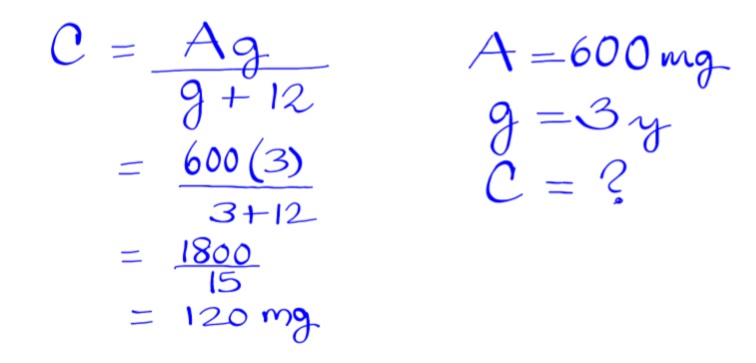 C = Ag / g + 12
= 600(3) / 3+12
= 1800 / 15
= 120 mg
A = 600 mg
g = 3 y
C = ?